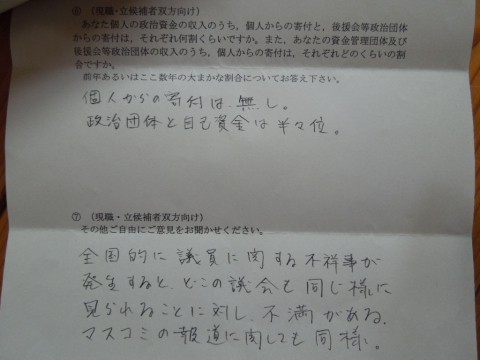 ⑥ （現職・立候補者双方向け）
あなた個人の政治資金の収入のうち、個人からの寄付と、後援会等政治団体
からの寄付は、それぞれ何割くらいですか。また、あなたの資金管理団体及び
後援会等政治団体の収入のうち、個人からの寄付は、それぞれどのくらいの割
合ですか。
前年あるいはここ数年の大まかな割合についてお答え下さい。
個人からの寄付は、無し。
政治団体と自己資金は半々位。
⑦ （現職・立候補者双方向け）
その他ご自由にご意見をお聞かせください。
全国的に議員に関する不祥事が
発生すると、どこの議会も同じ様に
見られることに対し、不満がある。
マスコミの報道に関しても同様。